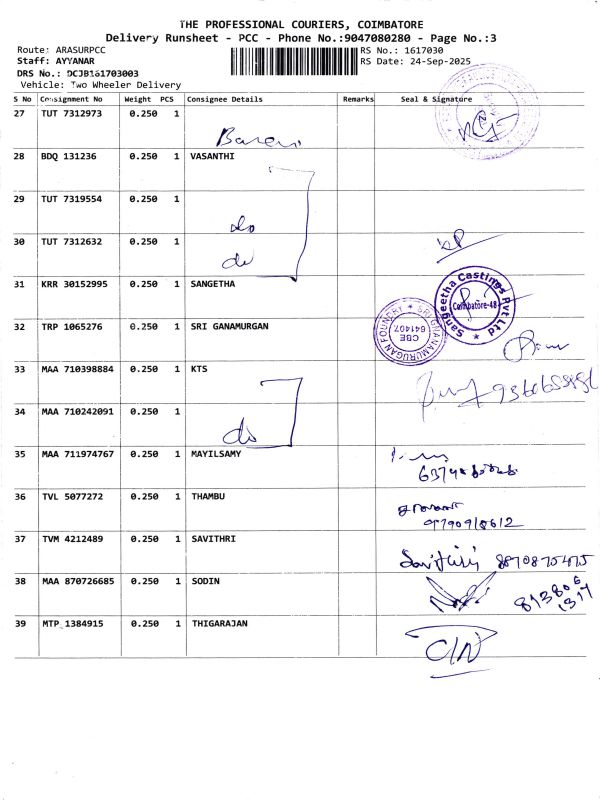 THE PROFESSIONAL COURIERS, COIMBATORE
Delivery Runsheet - PCC - Phone No.:9047080280 - Page No.:3
Route: ARASURPCC
RS No.: 1617030
Staff: AYYANAR
RS Date: 24-Sep-2025
DRS No.: DCJB161703003
Vehicle: Two Wheeler Delivery
S No Consignment No Weight PCS Consignee Details Remarks Seal & Signature
27 TUT 7312973 0.250 1
28 BDQ 131236 0.250 1 VASANTHI
29 TUT 7319554 0.250 1
do
30 TUT 7312632 0.250 1
do
31 KRR 30152995 0.250 1 SANGETHA
Sangeetha Castings Pvt Ltd
Coimbatore-48
32 TRP 1065276 0.250 1 SRI GANAMURGAN
SRI GNANAMURUGAN FOUNDRY
CBE
641407
33 MAA 710398884 0.250 1 KTS
34 MAA 710242091 0.250 1
do
35 MAA 711974767 0.250 1 MAYILSAMY
36 TVL 5077272 0.250 1 THAMBU
37 TVM 4212489 0.250 1 SAVITHRI
Savithiri
38 MAA 870726685 0.250 1 SODIN
813806
1317
39 MTP 1384915 0.250 1 THIGARAJAN